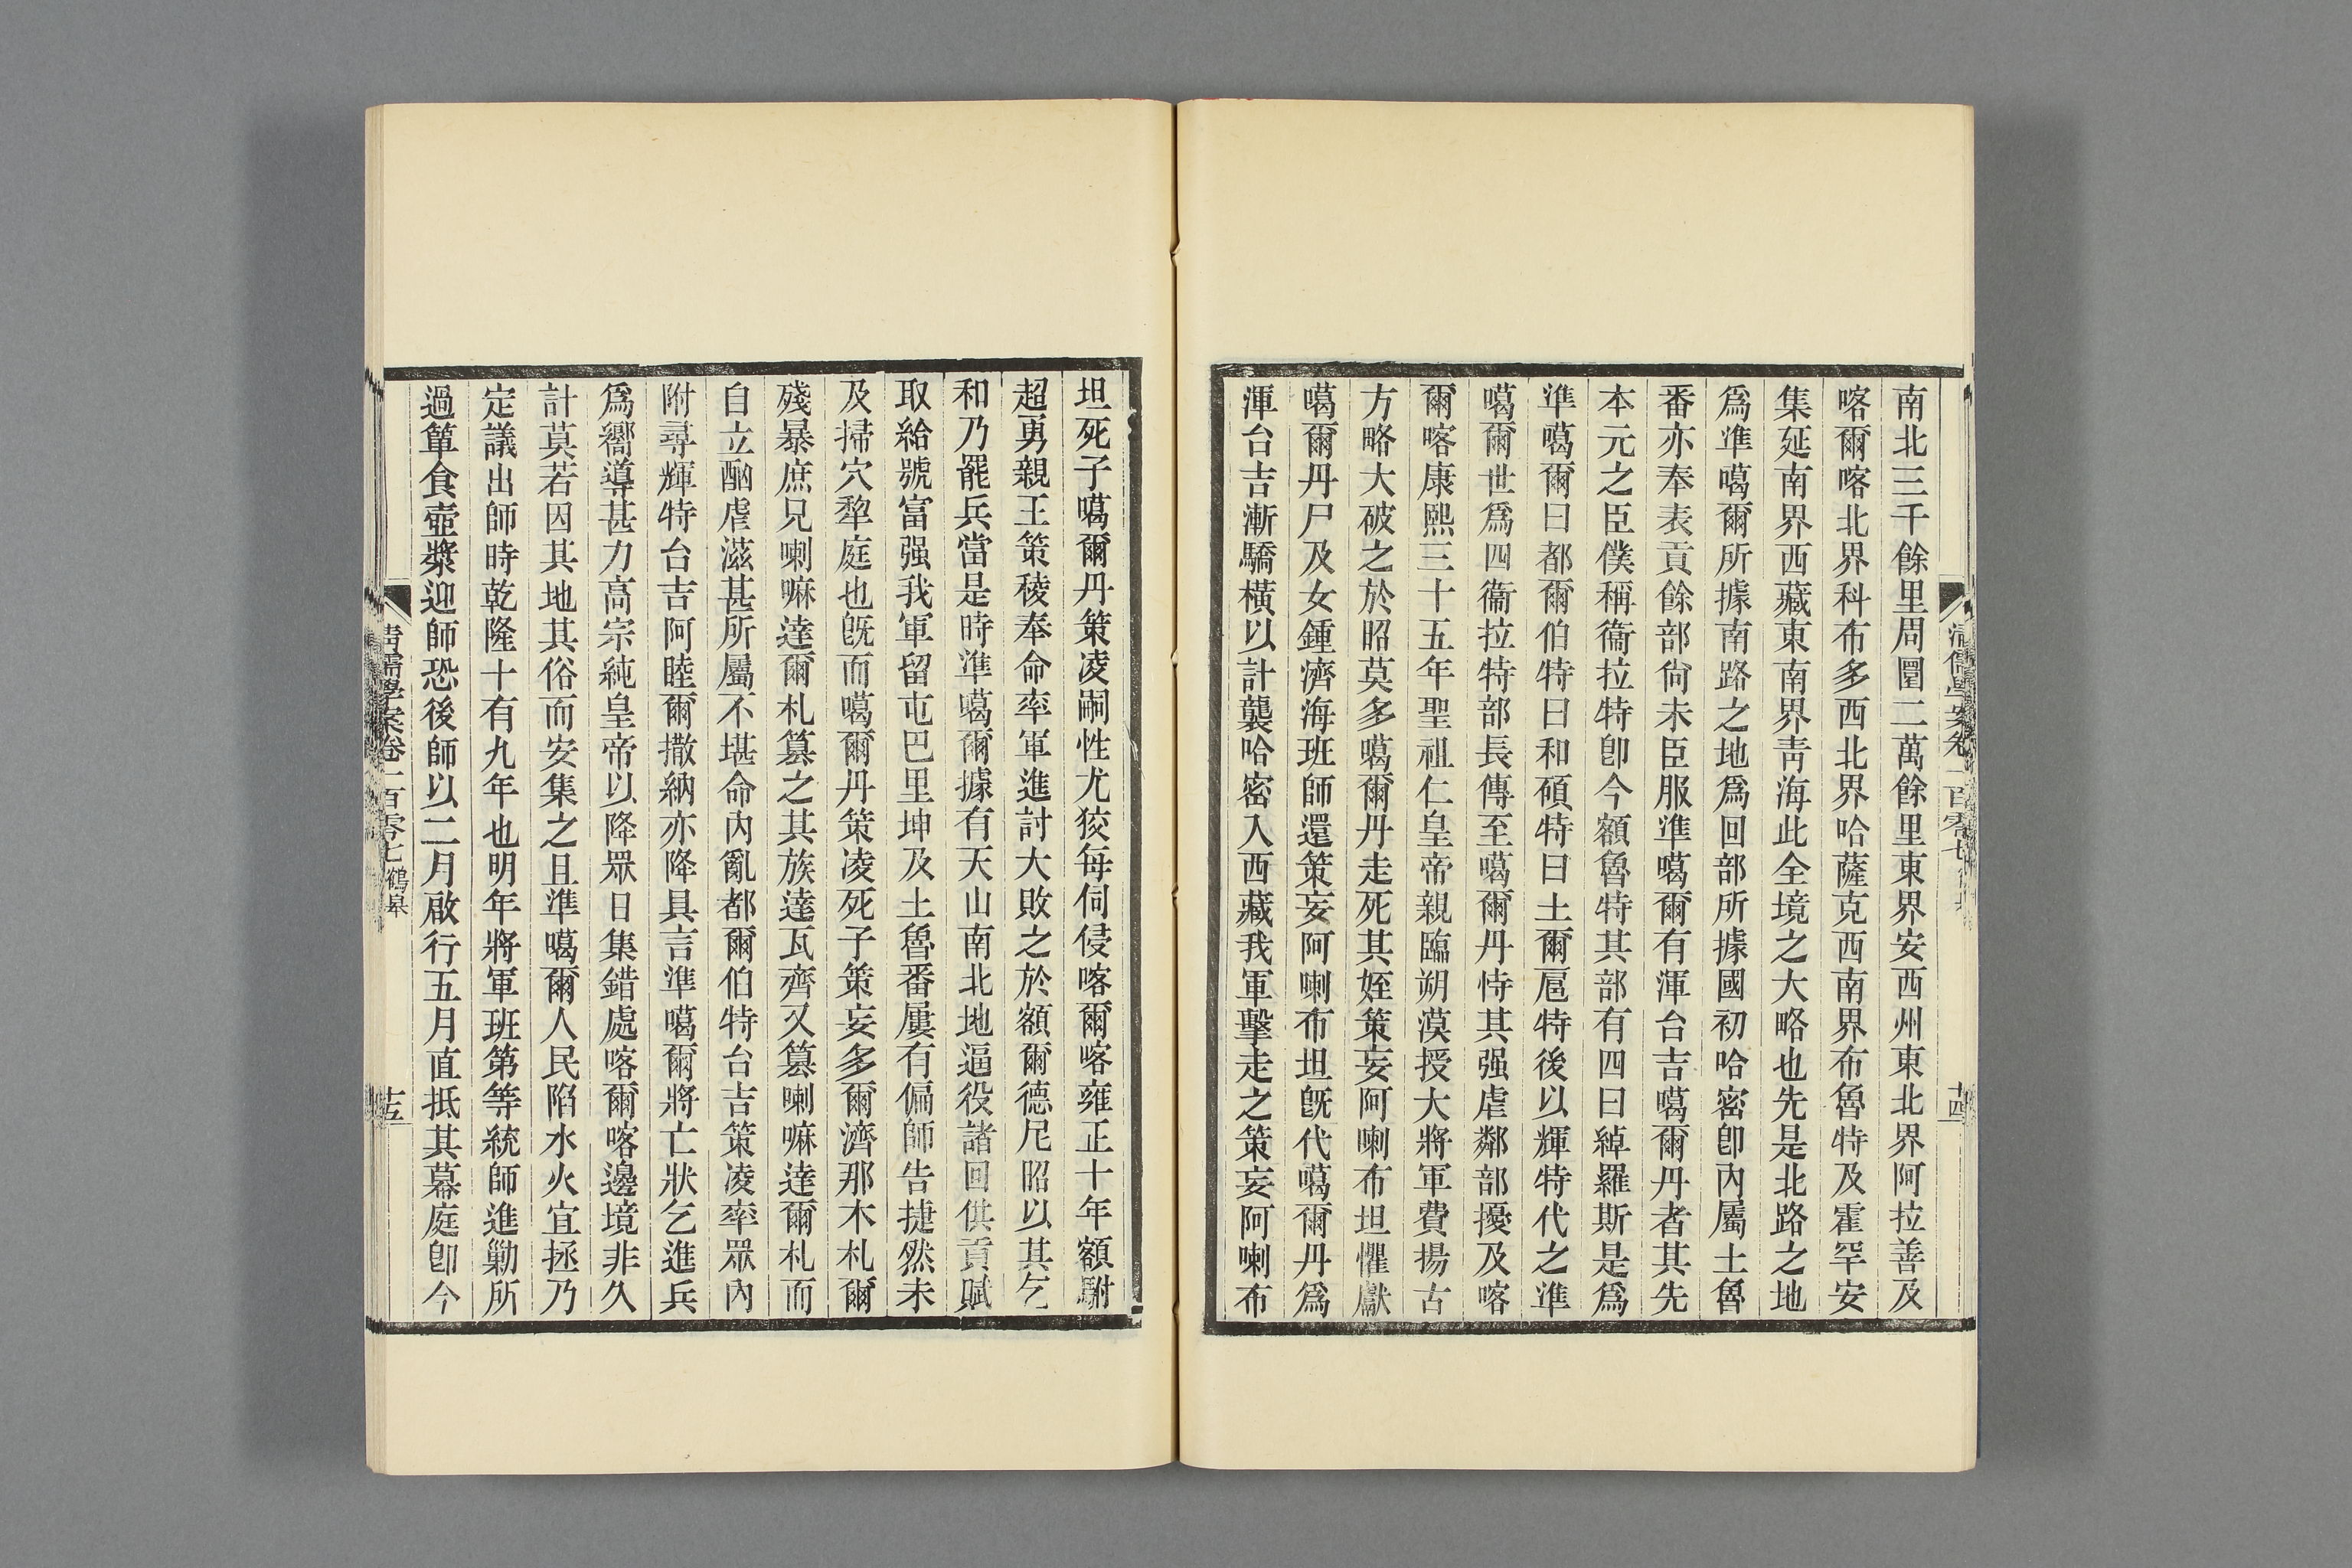 南北三千餘里周圍二萬餘里東界安西州東北界阿拉善及
喀爾喀北界科布多西北界哈薩克西南界布魯特及霍罕安
集延南界西藏東南界靑海此全境之大略也先是北路之地
爲準噶爾所據南路之地爲回部所據國初哈密卽內屬土魯
番亦奉表貢餘部尙未臣服準噶爾有渾台吉噶爾丹者其先
本元之臣僕稱衞拉特卽今額魯特其部有四曰綽羅斯是爲
準噶爾曰都爾伯特曰和碩特曰土爾扈特後以輝特代之準
噶爾世爲四衞拉特部長傳至噶爾丹恃其强虐鄰部擾及喀
爾喀康熙三十五年聖祖仁皇帝親臨朔漠授大將軍費揚古
方略大破之於昭莫多噶爾丹走死其姪策妄阿喇布坦懼獻
噶爾丹尸及女鍾濟海班師還策妄阿喇布坦旣代噶爾丹爲
渾台吉漸驕橫以計襲哈密入西藏我軍擊走之策妄阿喇布
清儒學案卷一百零七
十四
坦死子噶爾丹策凌嗣性尤狡每伺侵喀爾喀雍正十年額駙
超勇親王策稜奉命率軍進討大敗之於額爾德尼昭以其乞
和乃罷兵當是時準噶爾據有天山南北地逼役諸回供貢賦
取給號富强我軍留屯巴里坤及土魯番屢有偏師告捷然未
及掃穴犂庭也旣而噶爾丹策凌死子策妄多爾濟那木札爾
殘暴庶兄喇嘛達爾札篡之其族達瓦齊又篡喇嘛達爾札而
自立酗虐滋甚所屬不堪命內亂都爾伯特台吉策凌率眾內
附尋輝特台吉阿睦爾撒納亦降具言準噶爾將亡狀乞進兵
爲嚮導甚力高宗純皇帝以降眾日集錯處喀爾喀邊境非久
計莫若因其地其俗而安集之且準噶爾人民陷水火宜拯乃
定議出師時乾隆十有九年也明年將軍班第等統師進勦所
過簞食壺漿迎師恐後師以二月啟行五月直抵其幕庭卽今
清儒學案卷一百零七 鶴皋
十五